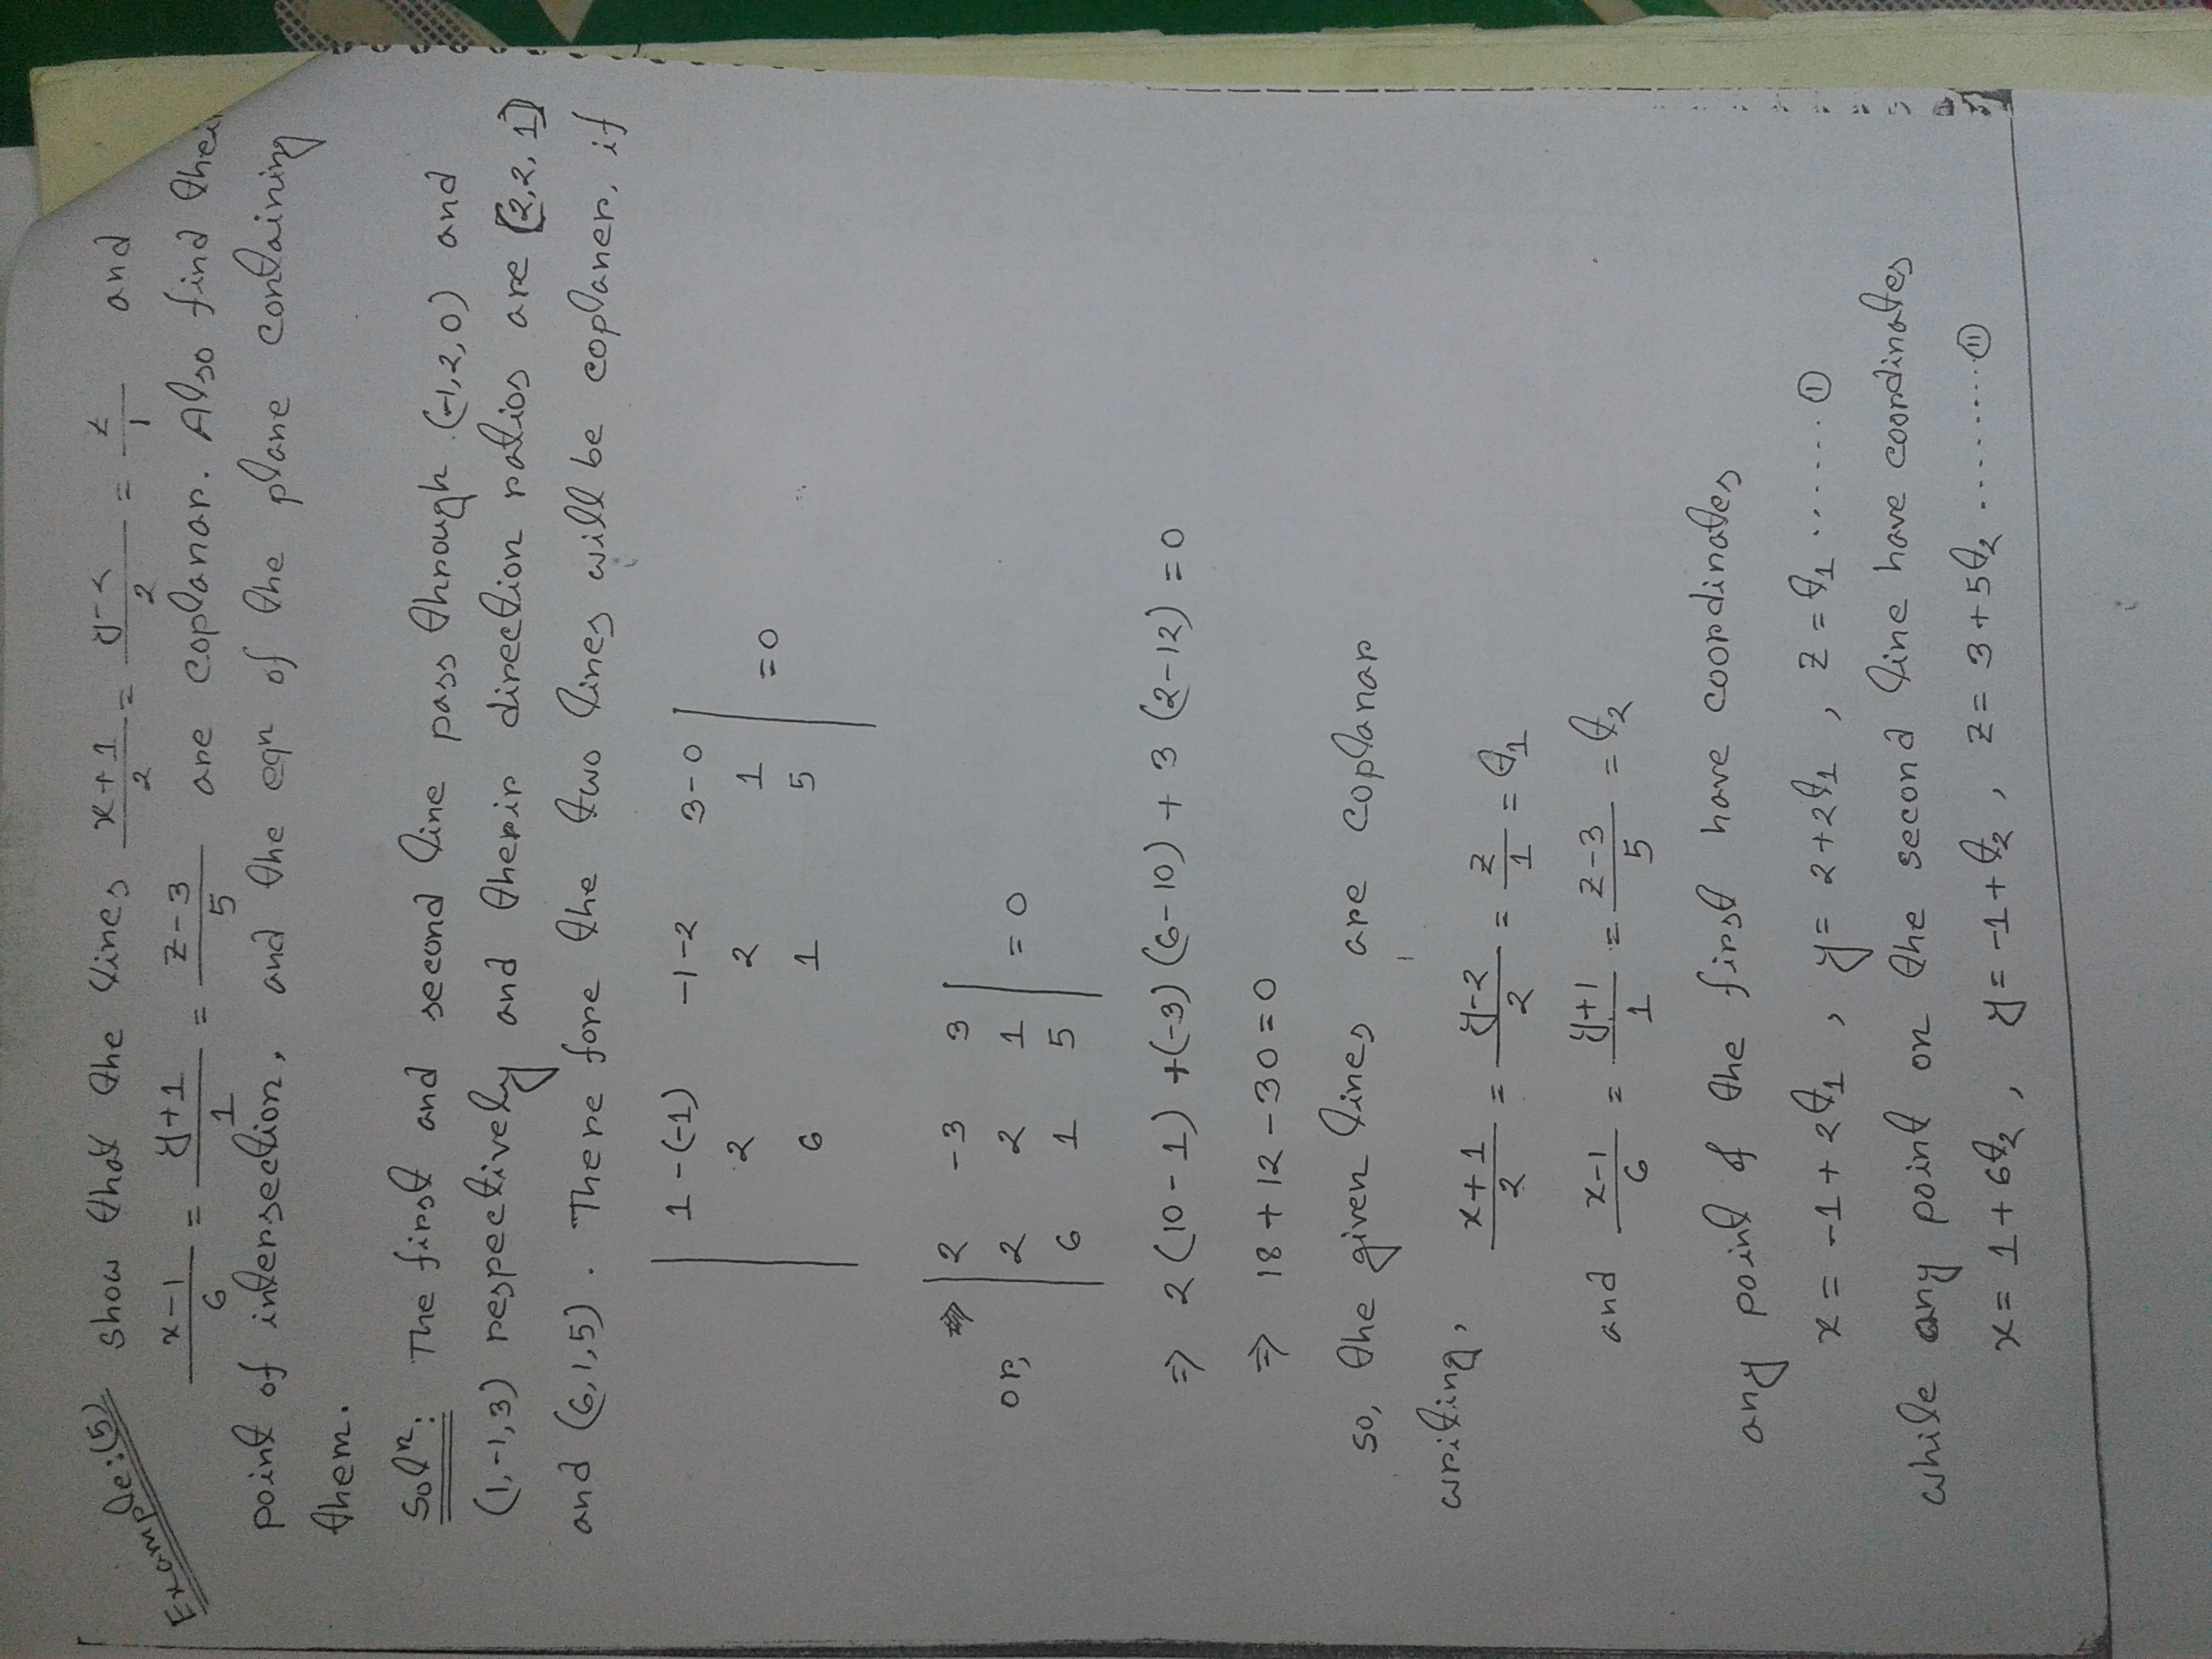 Example:(5) Show that the lines (x+1)/2 = (y-2)/2 = z/1 and
(x-1)/6 = (y+1)/1 = (z-3)/5 are coplanar. Also find their
point of intersection, and the eqn of the plane containing
them.
Soln: The first and second line pass through (-1,2,0) and
(1,-1,3) respectively and therir direction ratios are [2,2,1]
and (6,1,5). There fore the two lines will be coplaner, if
| 1-(-1) -1-2 3-0 |
| 2 2 1 | =0
| 6 1 5 |
| 2 -3 3 |
or, | 2 2 1 | = 0
| 6 1 5 |
⇒ 2(10-1) +(-3)(6-10) + 3(2-12) = 0
⇒ 18+12-30=0
so, the given lines are coplanar
writing,
(x+1)/2 = (y-2)/2 = z/1 = t₁
and (x-1)/6 = (y+1)/1 = (z-3)/5 = t₂
any point of the first have coordinates
x = -1+2t₁, y = 2+2t₁, z = t₁ ...... ①
while any point on the second line have coordinates
x = 1+6t₂, y = -1+t₂, z = 3+5t₂ ......... ⑪